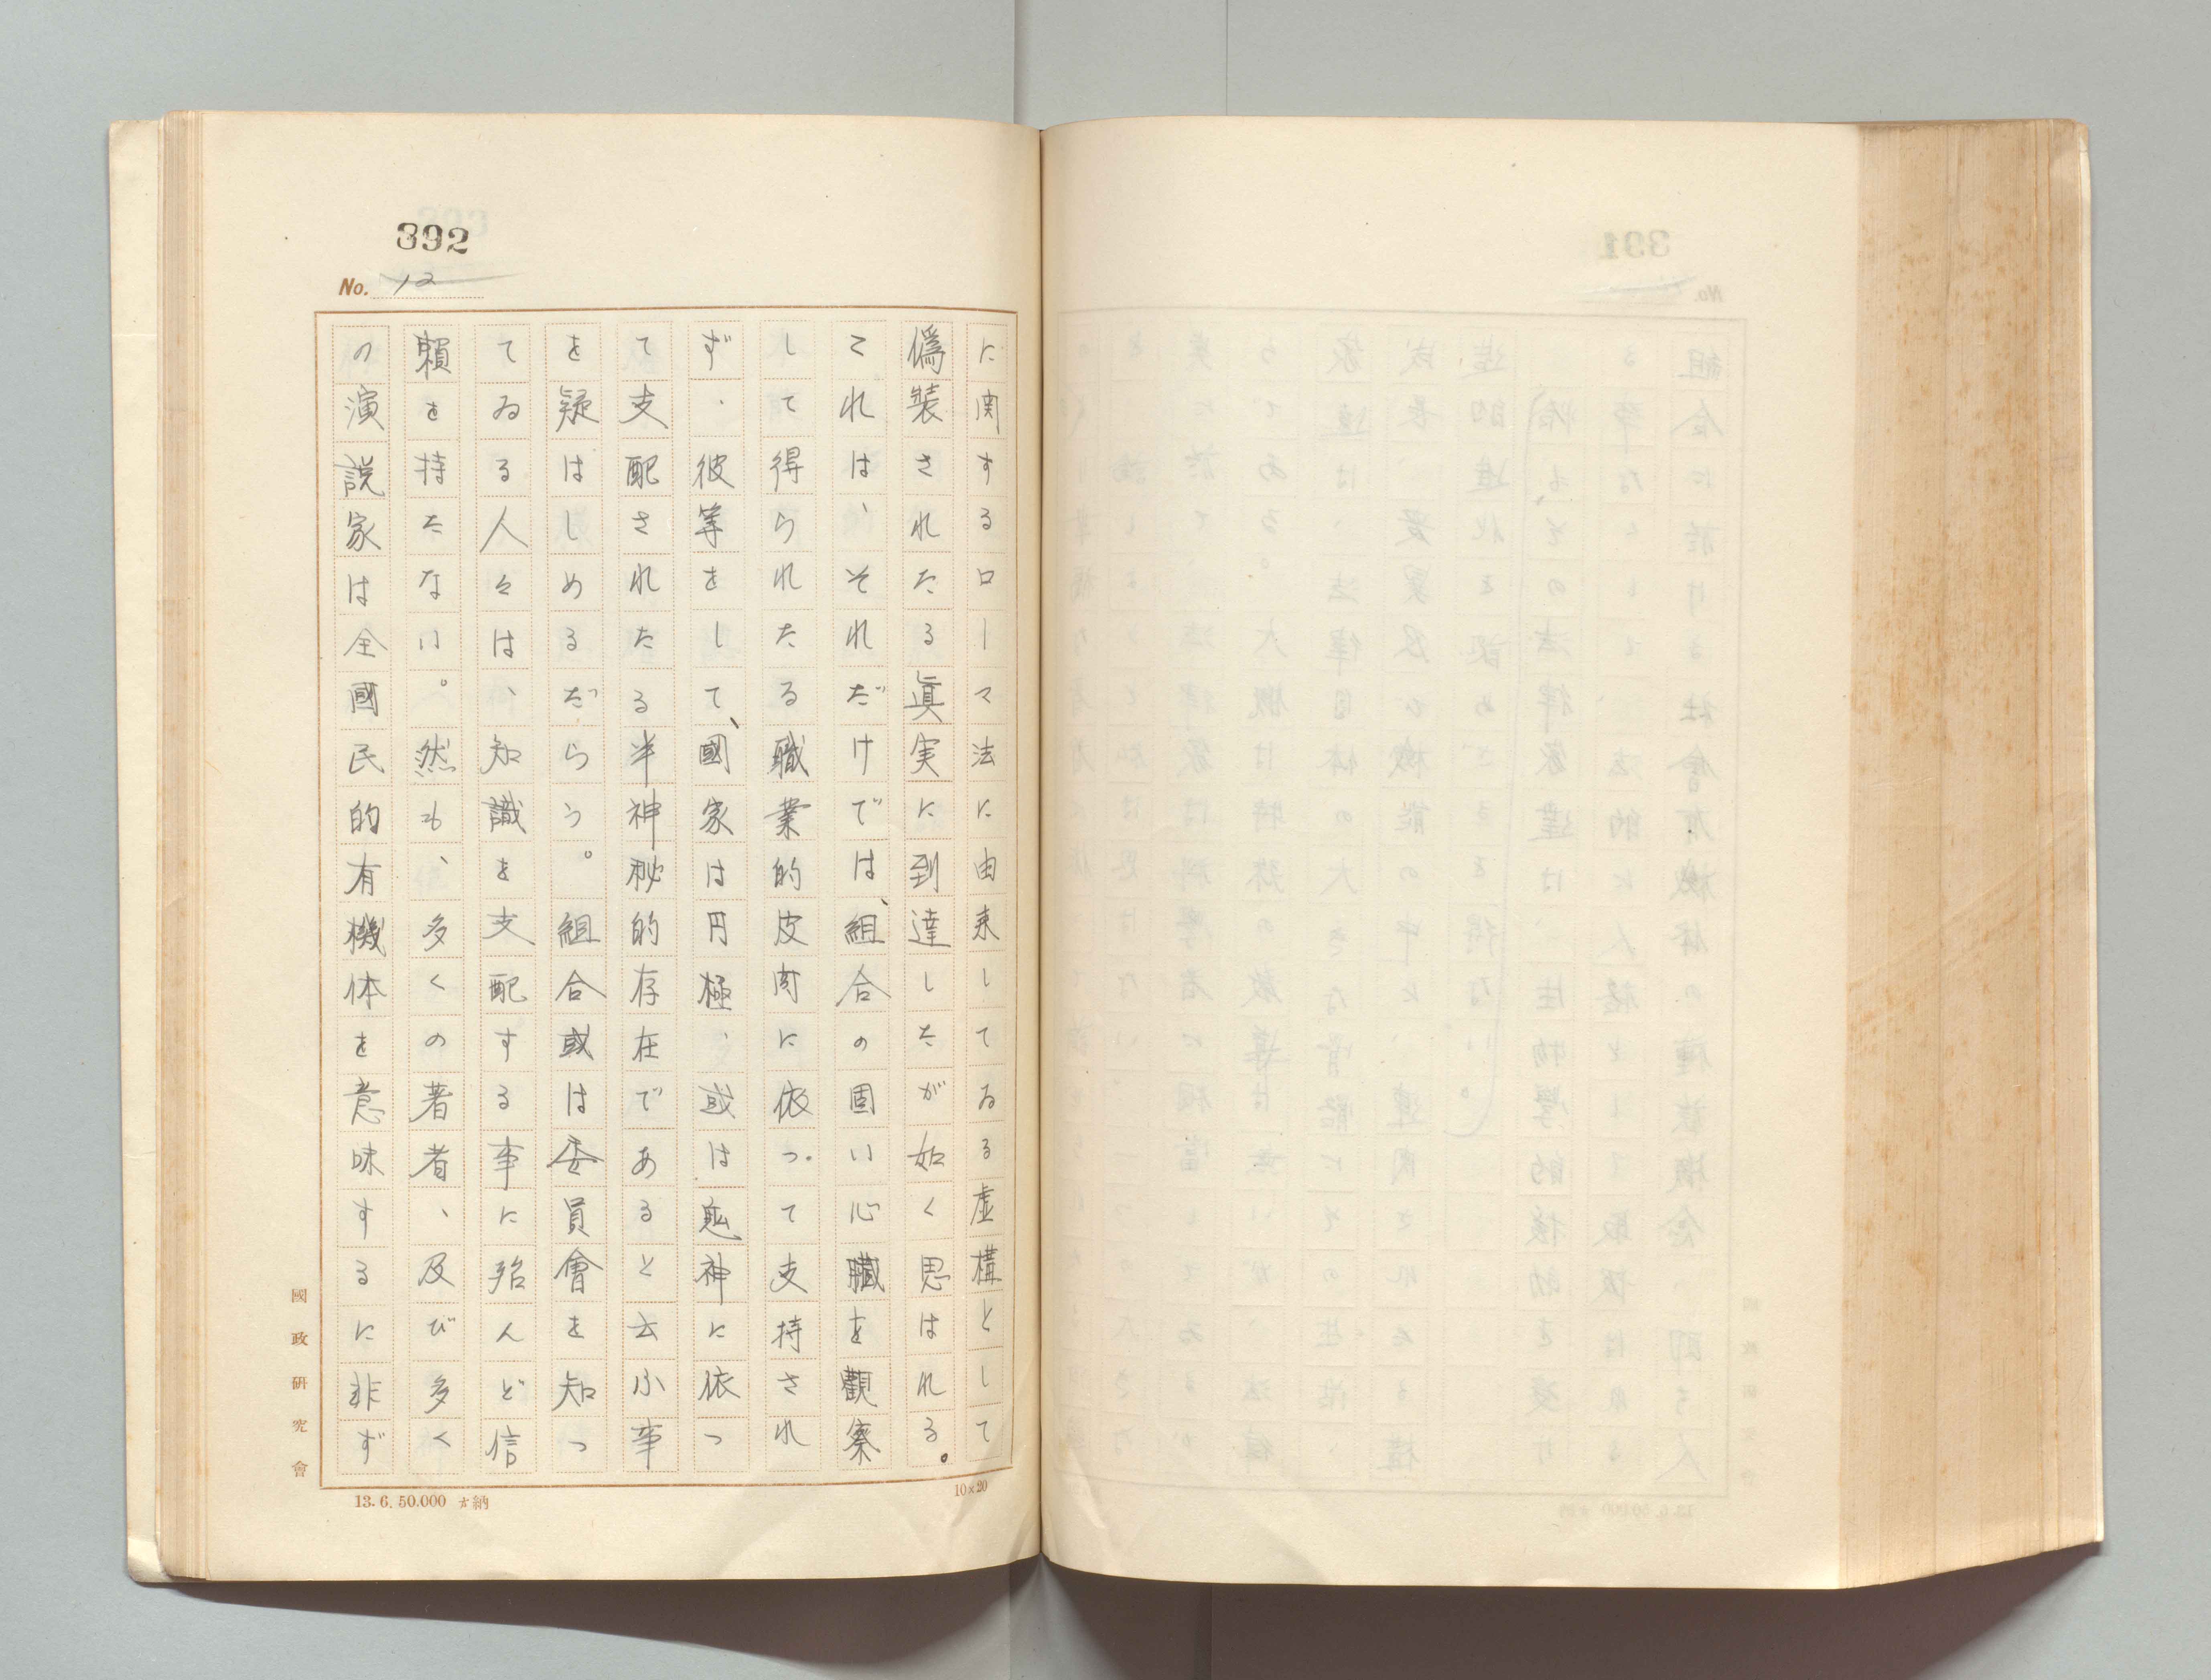 392
No. 12
に関するローマ法に由来してゐる虚構として
偽装されたる眞実に到達したが如く思はれる。
これは、それだけでは、組合の固い心臓を觀察
して得られたる職業的皮肉に依つて支持され
ず、彼等をして、國家は円極、或は鬼神に依つ
て支配されたる半神秘的存在であると云ふ事
を疑はしめるだらう。組合或は委員會を知つ
てゐる人々は、知識を支配する事に殆んど信
頼を持たない。然も、多くの著者、及び多く
の演説家は全國民的有機体を意味するに非ず
國政研究會
13.6.50.000 納
10×20